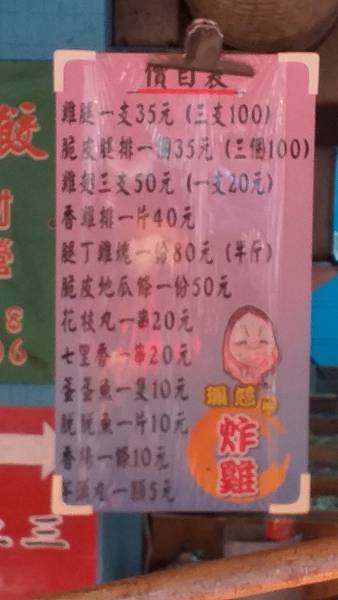 價目表
雞腿一支35元 (三支100)
脆皮腿排一個35元 (三個100)
雞翅三支50元 (一支20元)
香雞排一片40元
腿丁雞塊一份80元 (半斤)
脆皮地瓜條一份50元
花枝丸一串20元
七里香一串20元
蛋蛋魚一隻10元
脱脱魚一片10元
香腸一條10元
芋頭丸一顆5元
炸雞
餃
8
06
二三